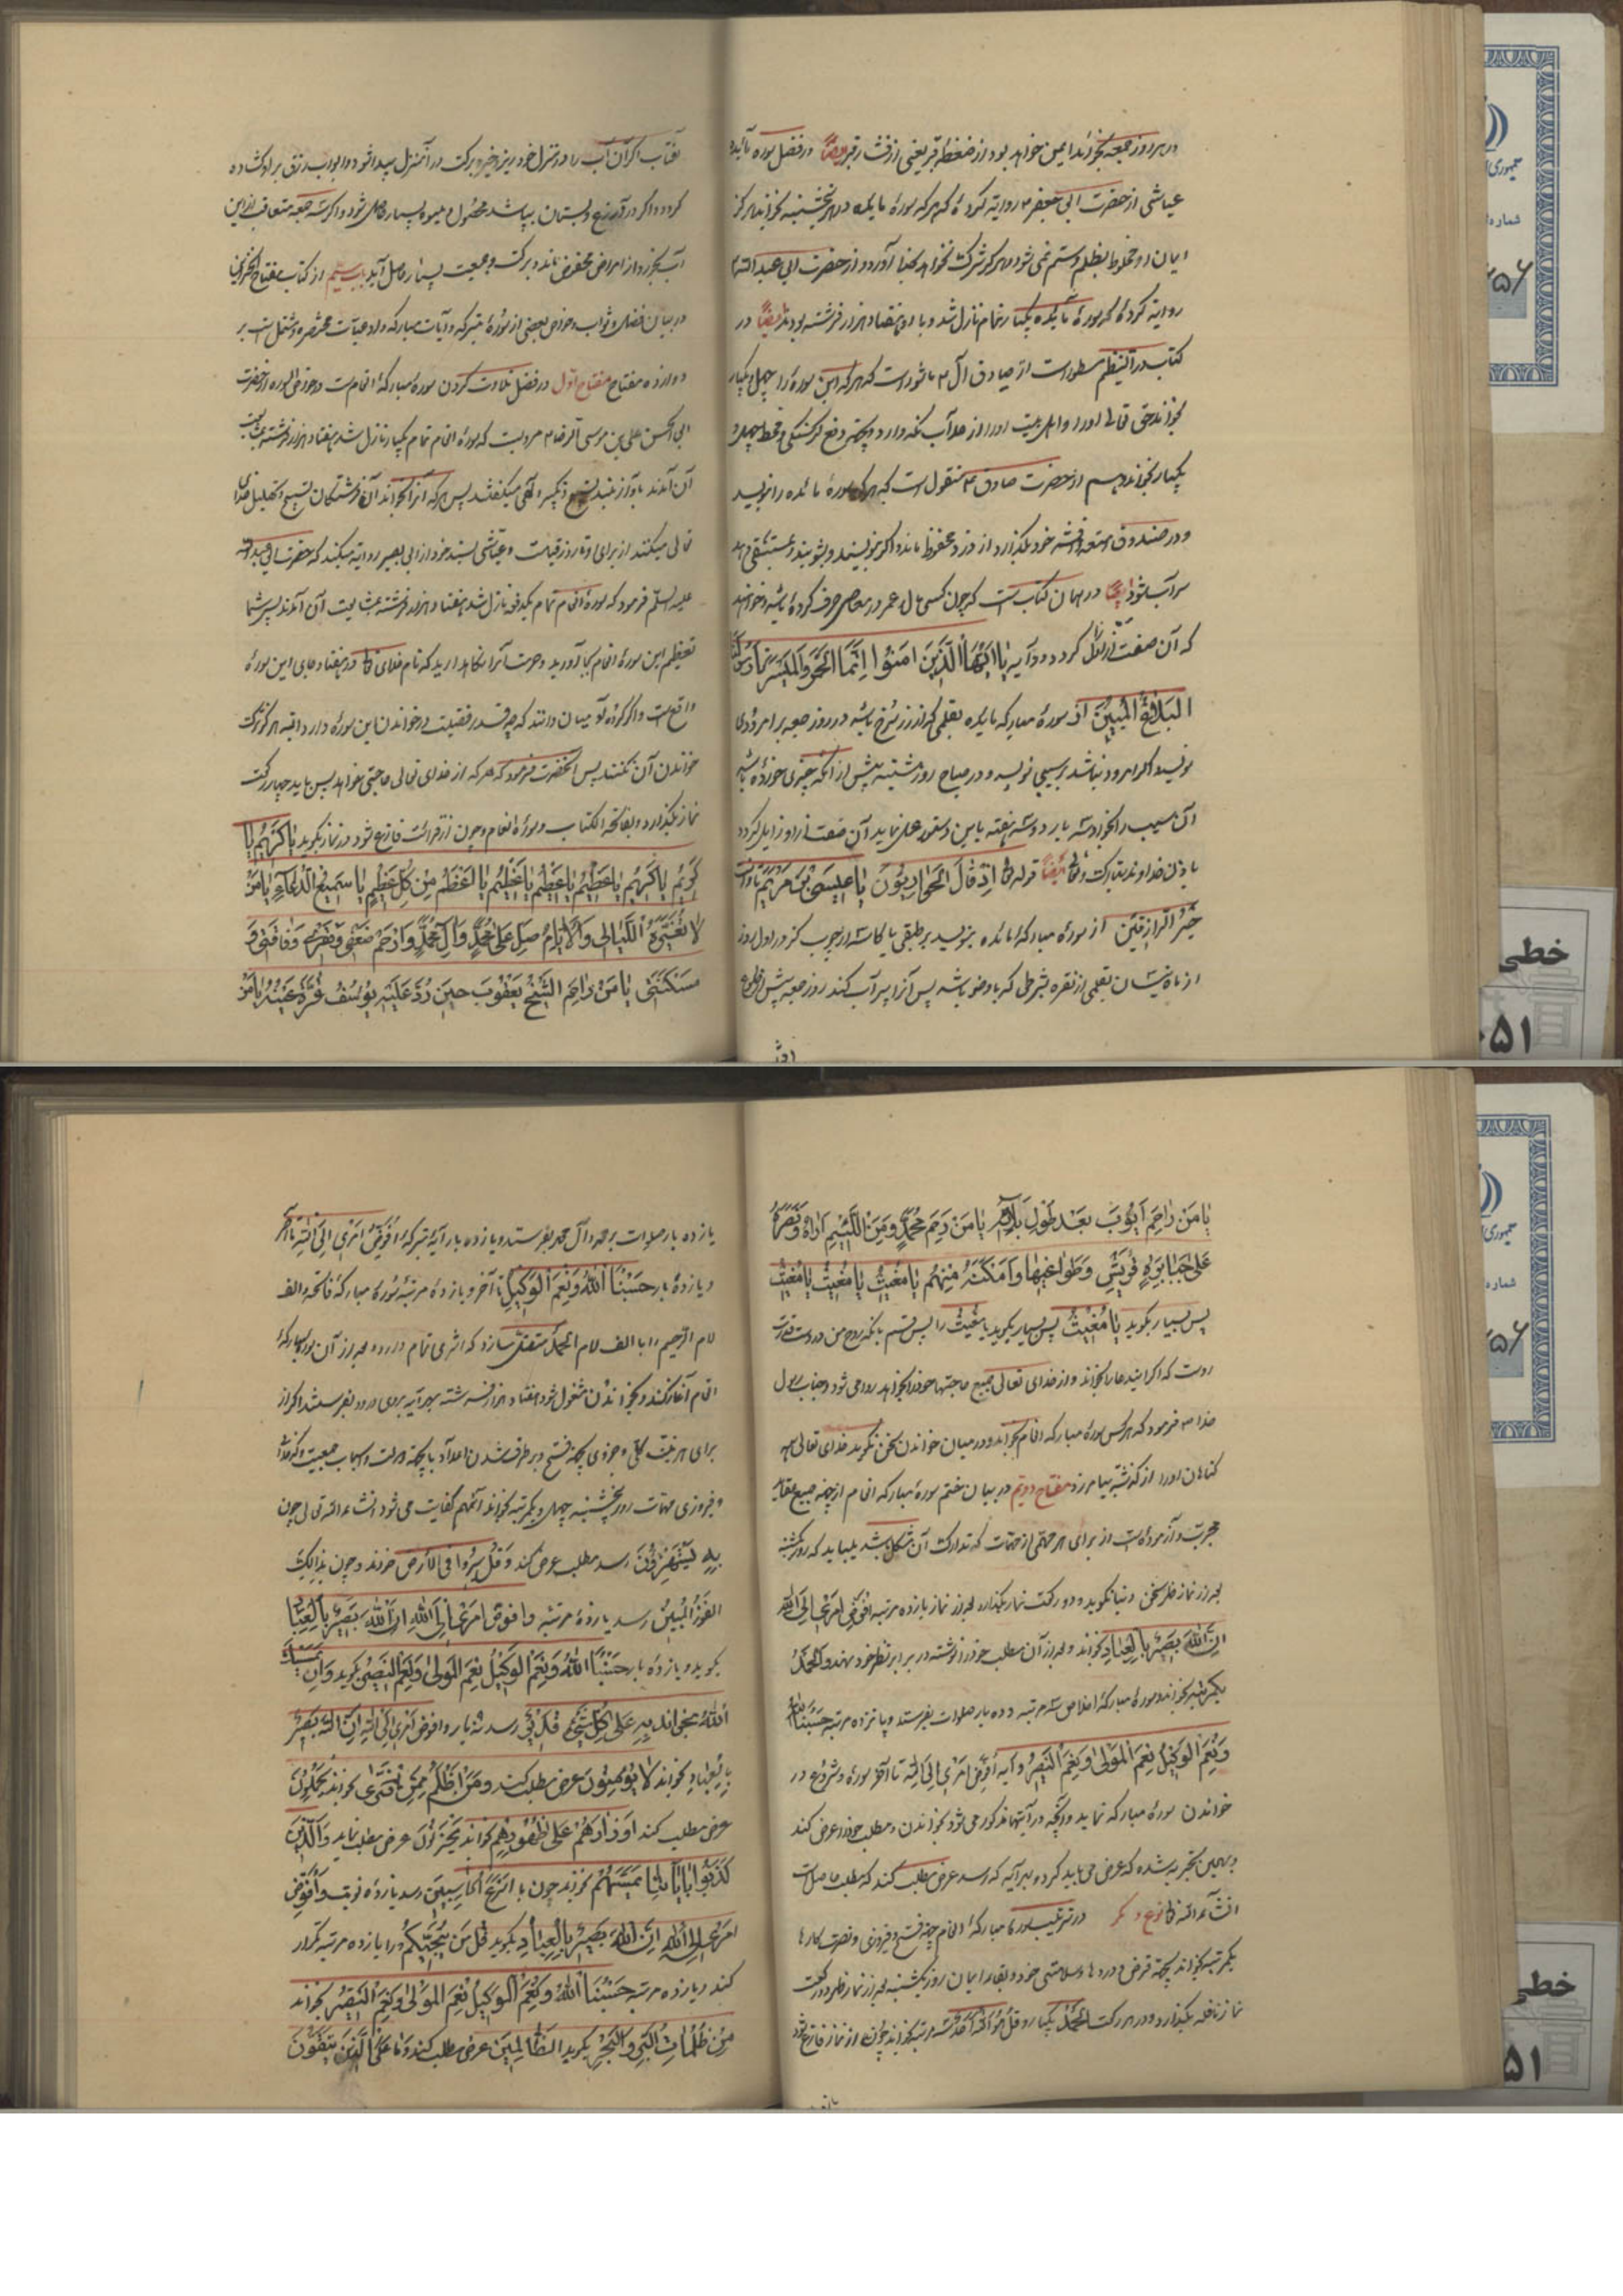 در هر روز جمعه بخواند ایمن خواهد بود از ضغطه قبر یعنی از فشار قبر ایضاً در فضل سوره مائده
عیاشی از حضرت ابی جعفر ع روایة کرده که هر که سورهٔ مایده در هر پنجشنبه بخواند هرگز
ایمان او مخلوط بظلم و ستم نمی شود و هرگز شرک نخواهد بخدا آورد و از حضرت ابی عبد الله ع
روایة کرده که سورهٔ مائده یکبار تمام نازل شد و با او هفتاد هزار فرشته بودند ایضاً در
کتاب در النظیم مسطور است از صادق آل ع ماثور است که هر که این سوره را چهل و یکبار
بخواند حق تعالی او را و اهل بیت او را از بلا نگه دارد و بجهة دفع گرسنگی و قحط چهل و
یکبار بخواند و هم از حضرت صادق ع منقول است که هر که سورهٔ مائده را بنویسد
و در صندوق امتعه و اقمشه خود بگذارد از دزد محفوظ ماند و اگر بنویسند و بشویند و مستسقی دهند
سیرآب شود ایضاً در همان کتاب است که چون کسی مال عمر در معاصی صرف کرده باشد و خواهد
که آن صفت از او زائل گردد دو آیه یا ایها الذین امنوا انما الخمر والمیسر تا رسولنا
البلاغ المبین از سورهٔ مبارکه مایده بقلمی که از زر سرخ باشد در روز جمعه بر امرودی
نویسد اگر امرود نباشد بر سیبی نویسد و در صباح روز شنبه پیش از آنکه چیزی خورده باشد
آن سیب را بخورد سه بار در سه هفته باین دستور عمل نماید آن صفت از او زایل گردد
باذن خداوند تبارک و تعالی ایضاً قوله تعالی اذ قال الحواریون یا عیسی بن مریم تا وانت
خیر الرازقین از سورهٔ مبارکهٔ مائده بنویسد بر طبقی یا کاسه از چوب گز در اول روز
از ماه نیسان بقلمی از نقره بشرطی که با وضو باشد پس آنرا پر آب کند روز جمعه پیش از طلوع
آفتاب اگر آن آب را در منزل خود بریزد خیر و برکت در آن منزل پیدا شود و ابواب رزق بر او گشاده
گردد و اگر در آن زرع و بستان بپاشد محصول و میوه بسیار حاصل شود و اگر سه جمعه متعاقب از این
آب بخورد از امراض محفوظ ماند و برکت و جمعیت بسیار حاصل آید باب سیم از کتاب مفتاح الخزاین
در بیان فضل و ثواب و خواص بعضی از سورهٔ متبرکه و آیات مبارکه و ادعیات مختصره و مشتمل است بر
دوازده مفتاح مفتاح اول در فضل تلاوت کردن سورهٔ مبارکهٔ انعام است و خواص السوره از حضرت
ابی الحسن علی بن موسی الرضا ع مرویست که سورهٔ انعام تمام یکبار نازل شد و هفتاد هزار فرشته بمشایعت
آن آمدند بآواز بلند تسبیح و تکبیر الهی میگفتند پس هر که آنرا بخواند آن فرشتگان تسبیح و تهلیل خدای
تعالی میکنند از برای او تا روز قیامت و عیاشی بسند خود از ابی بصیر روایة میکند که حضرت ابی عبدالله
علیه السلم فرمود که سورهٔ انعام تمام یکدفعه نازل شد و هفتاد هزار فرشته بمشایعت آن آمدند پس شما
تعظیم این سورهٔ انعام بجا آورید و حرمت آنرا نگاهدارید که نام خدای تعالی در هفتاد جای این سورهٔ
واقع است و اگر مردم میدانند که چه قدر فضیلت در خواندن این سوره دارد البته هرگز ترک
خواندن آن نکنند پس آنحضرت فرمود که هر که از خدای تعالی حاجتی خواهد پس باید چهار رکعت
نماز بگذارد و بفاتحة الکتاب و سورهٔ انعام و چون از قرائت فارغ شود در نماز بگوید یا کریم یا
کریم یا کریم یا عظیم یا عظیم یا عظیم یا اعظم من کل عظیم یا سمیع الدعاء یا من
لا تغیره اللیالی والایام صل علی محمد وال محمد وارحم ضعفی وفقری وفاقتی و
مسکنتی یا من راحم الشیخ یعقوب حین رد علیه یوسف قرة عینه یا من
یا من راحم ایوب بعد طول بلائه یا من رحم محمد ومن الیتیم اواه ونصره
علی جبابرة قریش وطواغیتها وامکنه منهم یا مغیث یا مغیث یا مغیث
پس بسیار بگوید یا مغیث پس بسیار بگوید یا مغیث را پس قسم بآنکه روح من در دست قدرت
اوست که اگر این دعا را بخواند و از خدای تعالی جمیع حاجتها خود را بخواهد روا می شود و جناب رسول
خدا ص فرمود که هر کس سورهٔ مبارکه انعام بخواند و در میان خواندن سخن نگوید خدای تعالی همه
گناهان او را از گذشته بیامرزد مفتاح دویم در بیان ختم سورهٔ مبارکه انعام از جهة جمیع مطالب
مجربست و آزموده است از برای هر مهمی از مهمات که تدارک آن مشکل باشد میباید که روز یکشنبه
بعد از نماز ظهر سخن دنیا نگوید و دو رکعت نماز بگذارد بعد از نماز یازده مرتبه افوض امری الی الله
ان الله بصیر بالعباد بخواند و بعد از آن مطلب خود را نوشته در برابر نظر خود نهد و الحمد
یکمرتبه بخواند و سورهٔ مبارکهٔ اخلاص سه مرتبه و ده بار صلوات بفرستد و پانزده مرتبه حسبنا الله
ونعم الوکیل نعم المولی ونعم النصیر وایه افوض امری الی الله تا آخر سوره و شروع در
خواندن سورهٔ مبارکه نماید و آنچه در آیتها مذکور می شود بخواندن و مطلب خود را عرض کند
و بهمین تجربه شده که عرض می باید کرد و بهر آیه که رسد عرض مطلب کند که مطلب حاصل است
انشاء الله تعالی نوع دیگر در ترتیب سوره مبارکهٔ انعام جهة فتح و فیروزی و نصرت کارها
یکمرتبه بخواند بجهة قرض و دردها و سلامتی خود و بقاء ایمان روز یکشنبه بعد از نماز ظهر دو رکعت
نماز نافله بگذارد و در هر رکعت الحمد یکبار و قل هو الله احد سه مرتبه بخواند چون از نماز فارغ شود
یازده بار صلوات بر محمد و آل محمد بفرستد و یازده بار آیهٔ متبرکهٔ افوض امری الی الله تا آخر
و یازدهٔ بار حسبنا الله ونعم الوکیل تا آخر و یازدهٔ مرتبه سورهٔ مبارکه فاتحه و الف
لام الرحیم را با الف لام الحمد متصل سازد که اثری تمام دارد و بعد از آن سوره مبارکهٔ
انعام آغاز کند و بخواندن مشغول شود هفتاد هزار فرشته بهر آیه بروی درود بفرستند اگر از
برای هر نیت کلی و جزوی بجهة فتح و برطرف شدن اعدا و یا بجهة دولت و اسباب جمعیت
و فیروزی مهمات روز پنجشنبه چهل و یکمرتبه بخواند آنمهم کفایت می شود انشاءالله تعالی چون
به یستهزؤن رسد مطلب عرض کند و قل سیروا فی الارض خواند و چون بذالک
الفوز المبین رسد یازدهٔ مرتبه وافوض امری الی الله ان الله بصیر بالعباد
بگوید و یازده بار حسبنا الله ونعم الوکیل نعم المولی ونعم النصیر بگوید وان یمسسک
الله بخواند به علی کل شیء قدیر رسد نه بار وافوض امری الی الله ان الله بصیر
بالعباد بخواند لا یؤمنون عرض مطلب کند ومن اظلم ممن افتری بخواند
عرض مطلب کند اوزارهم علی ظهورهم بخواند یحزنون عرض مطلب نماید والذین
کذبوا بایاتنا یمسهم بخواند چون با اسرع الحاسبین رسد یازدهٔ نوبت وافوض
امری الی الله ان الله بصیر بالعباد بگوید قل من ینجیکم را یازده مرتبه تکرار
کند و یازده مرتبه حسبنا الله ونعم الوکیل نعم المولی ونعم النصیر بخواند
من ظلمات البر والبحر بگوید الظالمین عرض مطلب کند وما علی الذین یتقون
جمهوری
شماره
خطی
۵۱
جمهوری
شماره
خطی
۵۱